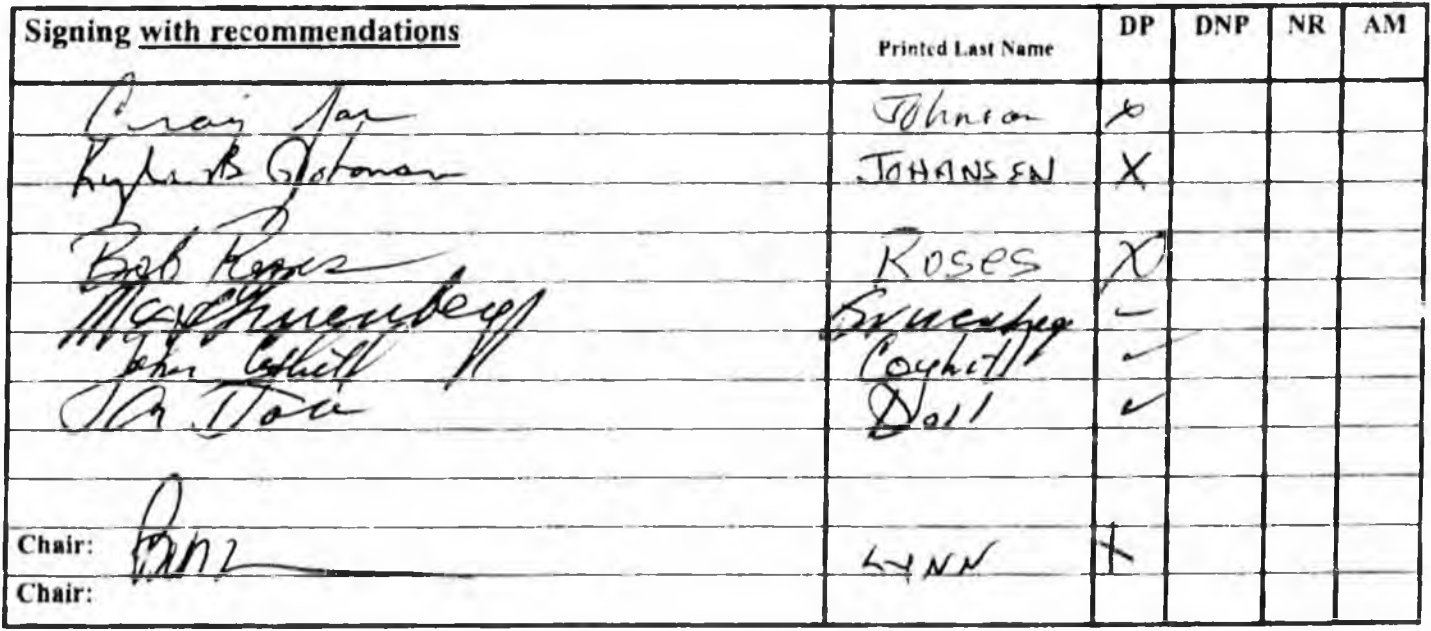 Signing with recommendations Printed Last Name DP DNP NR AM
Craig Johnson x
JOHANSEN X
Bob Roses Roses X
Max Gruenberg Gruenberg -
John Coghill Coghill ✓
Doll Doll ✓
Chair: LYNN X
Chair: